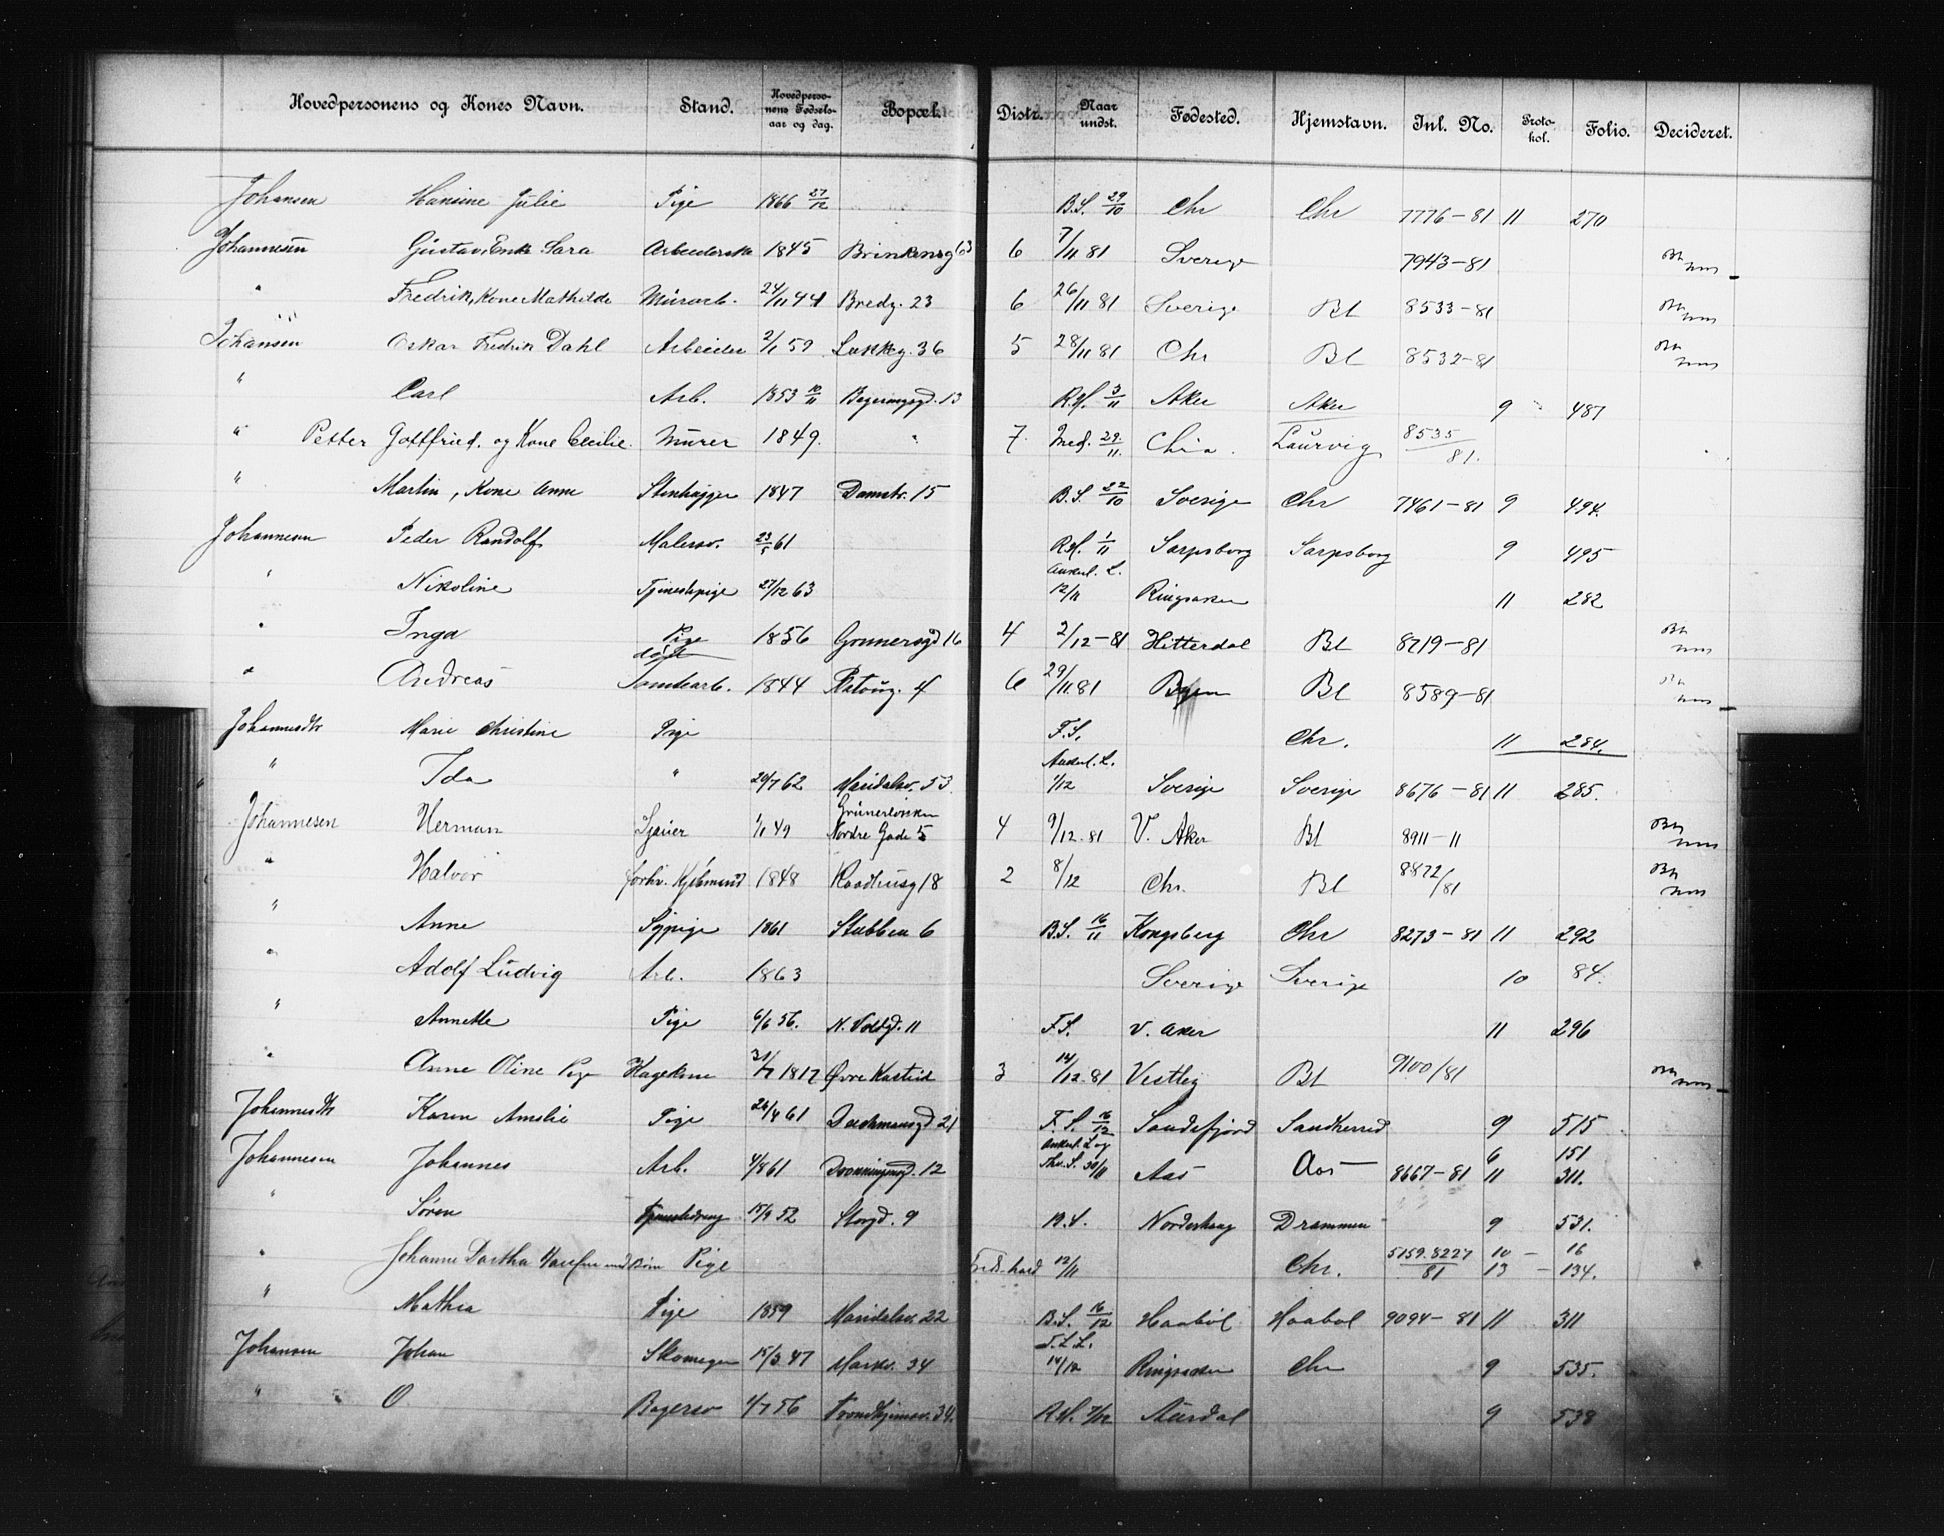 Hovedpersonens og Kones Navn. Stand. Hovedpersonens Fødselsaar og dag. Bopæl. Distr. Naar undst. Fødested. Hjemstavn. Inl. No. Protokol. Folio. Decideret.
Johansen Hansine Julie Pige 1866 27/12 B.S. 29/10 Chr Chr 7776-81 11 270
Johannesen Gustav, Enke Sara Arbeiderske 1845 Brinkensg 63 6 7/11 81 Sverige 7943-81
" Fredrik, Kone Mathilde Murarb. 24/11 44 Bredg. 23 6 26/11 81 Sverige Bl 8533-81
Johansen Oskar Fredrik Dahl Arbeider 2/1 59 Lakkeg. 36 5 28/11 81 Chr Bl 8532-81
" Carl Arb. 1853 10/11 13 3/11 Aker Aker 9 487
" Petter Gottfried. og Kone Cecilie. Murer 1849. " 7 Med. 29/11. Chra. Laurvig 8535/81.
" Martin, Kone Anne Stenhugger 1847 Damstr. 15 B.S. 22/10 Sverige Chr 7461-81 9 494.
Johannesen Peder Randolf Malersv. 23/5 61 1/11 Sarpsborg Sarpsborg 9 495
" Nikoline Tjenestepige 27/12 63 Ankel. L. 12/11 Ringsaker 11 282
" Inga Pige 1856 Grunersgd 16 4 2/12-81 Hitterdal Bl 8719-81
" Andreas Tomtearb. 1844 4 6 29/11.81 Byen Bl 8589-81
Johannesdtr Marie Christine Pige F.S. Chr. 11 284.
" Ida " 29/7 62 Maridalsv. 53 Ankel. L. 1/12 Sverige Sverige 8676-81 11 285.
Johannesen Herman Sjauer 1/1 49 Grünerløkken Nordre Gade 5 4 9/12.81 V. Aker Bl 8911-11
" Halvor forhv. Kjøbmand 1848 Raadhusg 18 2 8/12 Chr. Bl 8872/81
" Anne Sypige 1861 Stubben 6 B.S. 16/11 Kongsberg Chr 8273-81 11 292
" Adolf Ludvig Arb. 1863 Sverige Sverige 10 84.
" Annette Pige 6/6 56. N. Voldgd. 11 F.S. V. Aker 11 296
" Anne Oline Pige 31/7 1817 Øvre 3 14/12.81 Vestby Bl 9100/81
Johannesdtr Karen Amalie Pige 26/4 61 Deichmansgd 21 F.S. 16/12 Sandefjord Sandherred 9 515
Johannesen Johannes Arb. 4/8 61 Dronningensgd. 12 Ankel. L og Thv. S. 30/11 Aas Aas 8667-81 6 151 11 311.
" Søren Tjenestedreng 15/9 52 Storgd. 9 B.S. Norderhaug Drammen 9 531.
" Johanne Dorthea Pige 12/11 Chr. 5159.8227/81 10 - 16 13 - 134.
" Mathea Pige 1859 Maridalsv. 22 B.S. 16/12 Haabøl Haabøl 9094-81 11 311
Johansen Johan Skomager 15/3 47 Markv. 34 14/12 Ringsaker Chr 9 535.
" O. Bagersv 1/7 56 Trondhjemsv. 34. 7/12 Aurdal 9 538